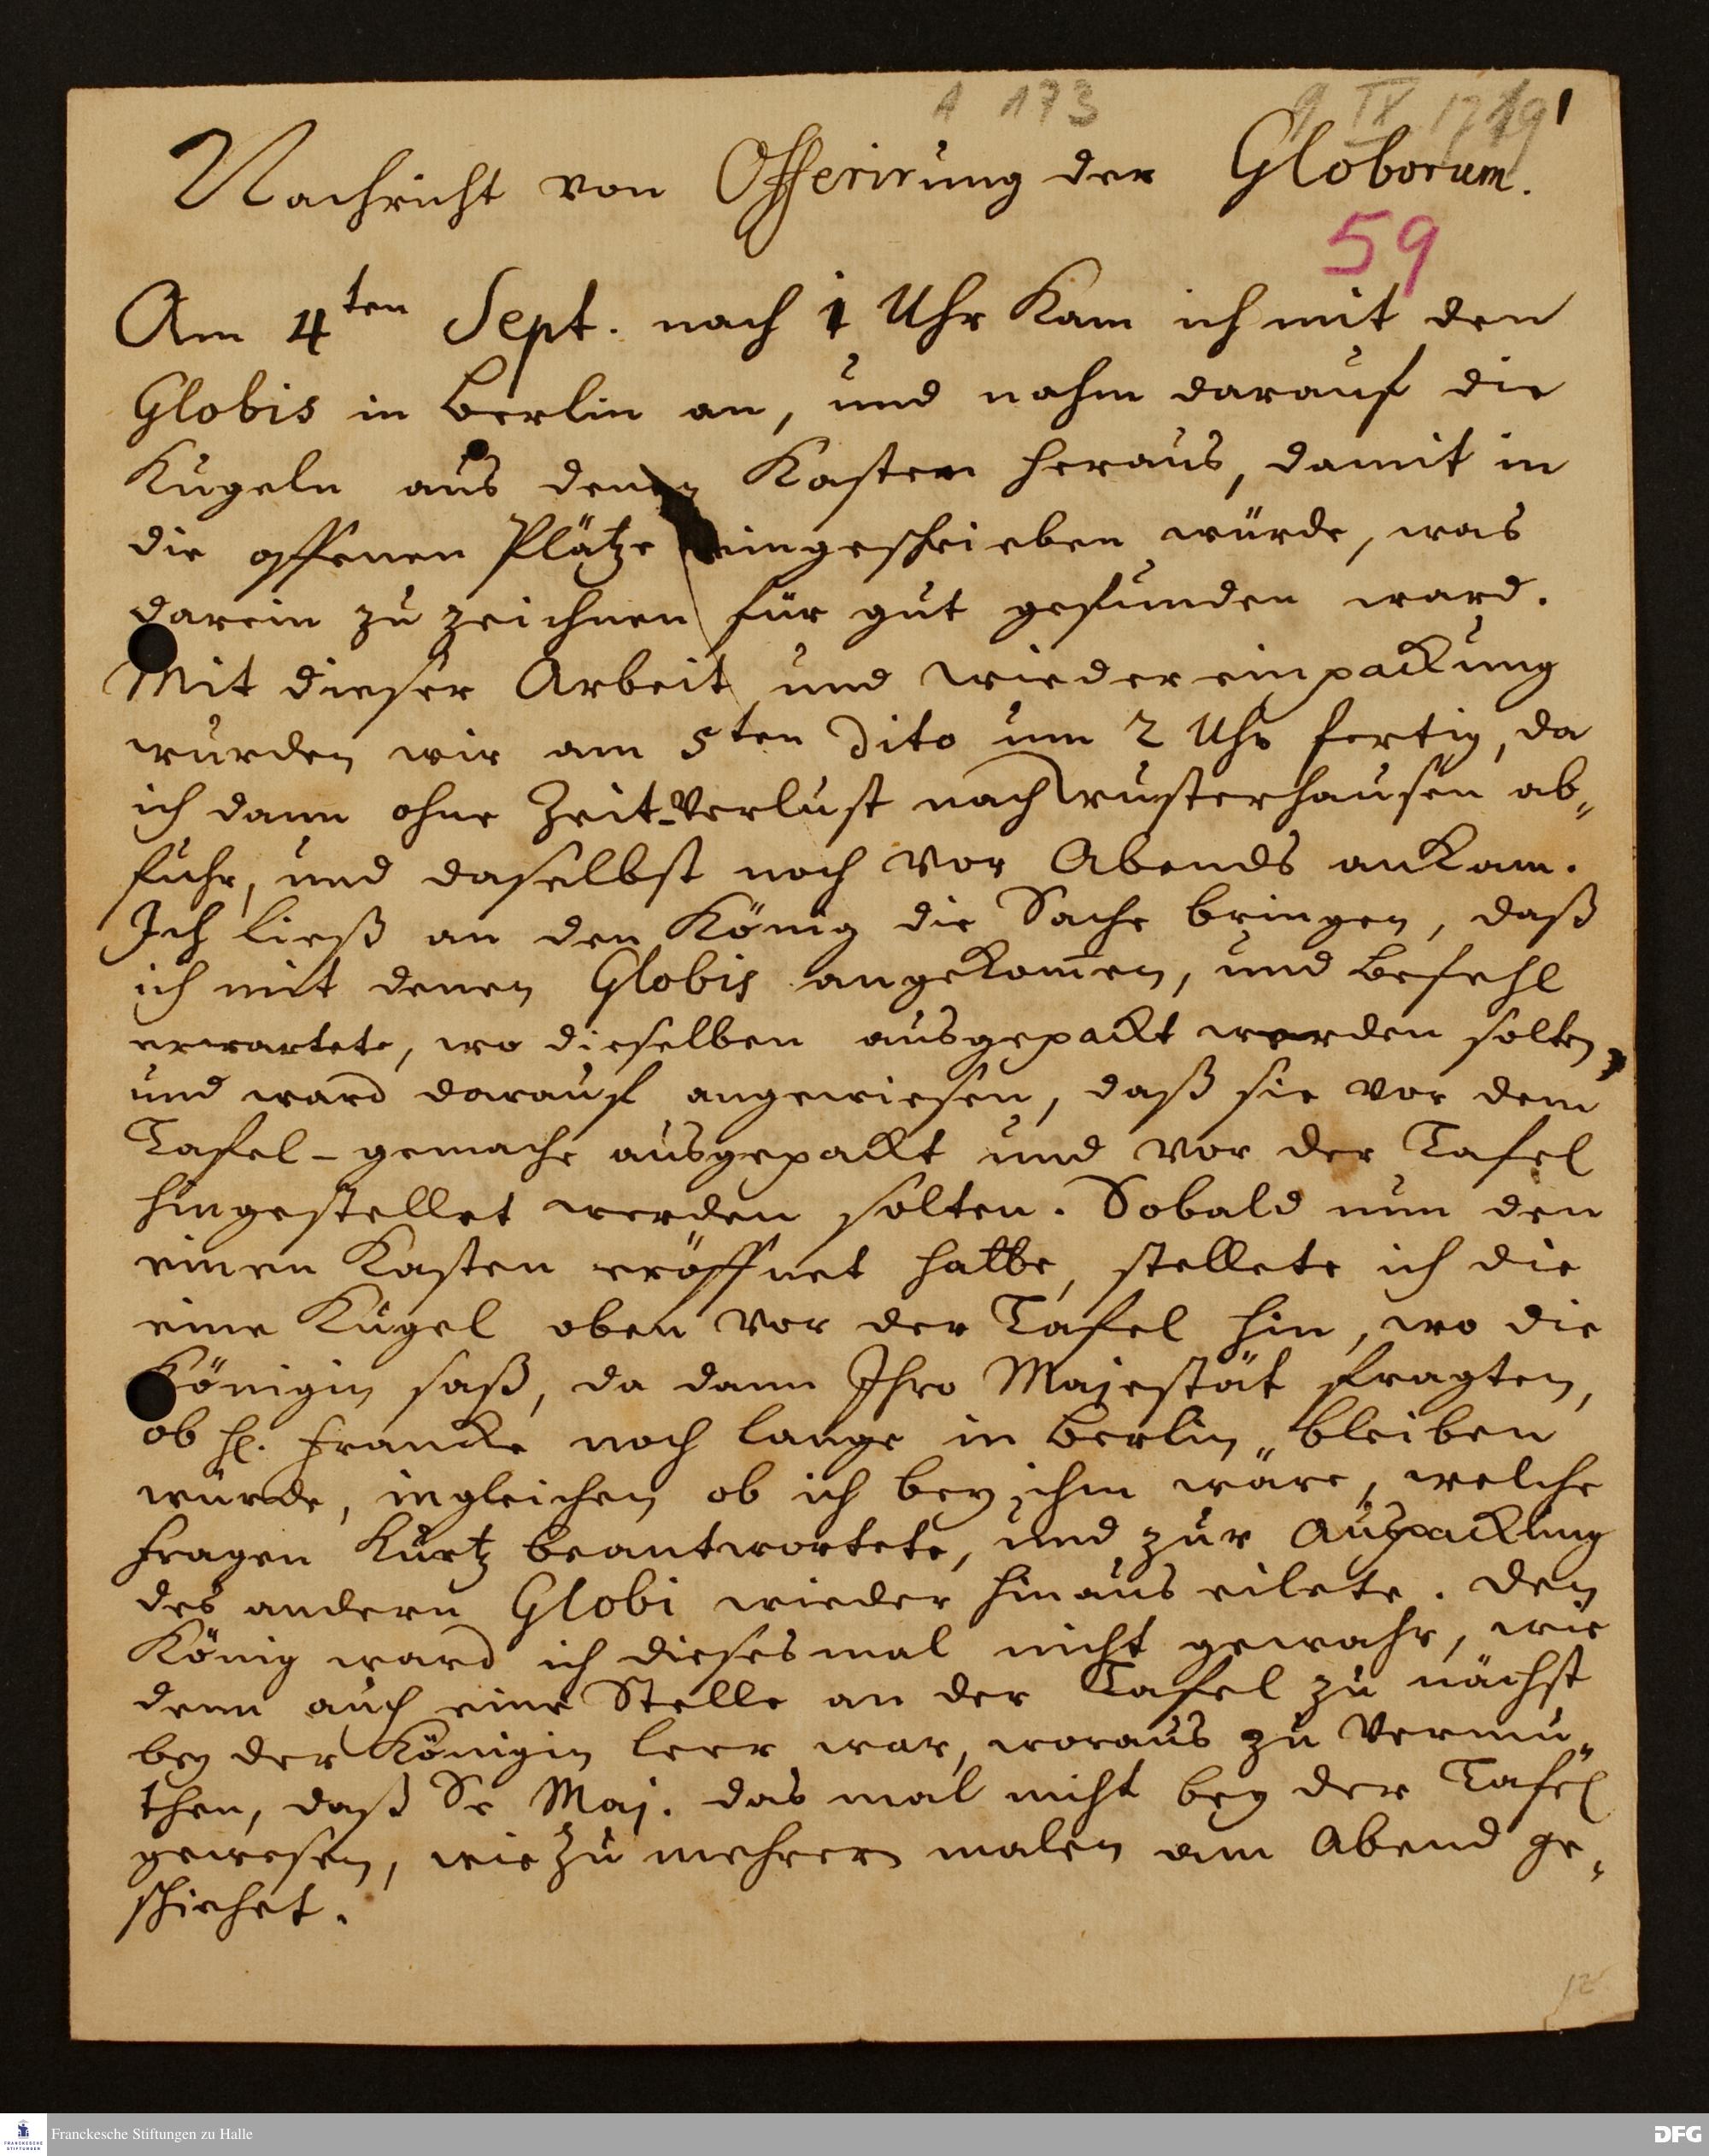 A 173
9 IX 1719
1
Nachricht von Offerirung der Globorum.
59
Am 4ten Sept. nach 1 Uhr kam ich mit den
Globis in Berlin an, und nahm darauf die
Kugeln aus denen Kasten heraus, damit in
die offenen Plätze eingeschrieben würde, was
darein zu zeichnen für gut gefunden ward.
Mit dieser Arbeit und wieder einpackung
wurden wir am 5ten dito um 2 Uhr fertig, da
ich dann ohne Zeit-Verlust nach Wusterhausen ab„
fuhr, und daselbst noch vor Abends ankam.
Ich ließ an den König die Sache bringen, daß
ich mit denen Globis angekom̄en, und Befehl
erwartete, wo dieselben ausgepackt werden solten,
und ward darauf angewiesen, daß sie vor dem
Tafel-gemache ausgepackt und vor der Tafel
hingestellet werden solten. Sobald nun den
einen Kasten eröffnet hatte, stellete ich die
eine Kugel oben vor der Tafel hin, wo die
Königin saß, da dann Ihro Majestät fragten,
ob H. Francke noch lange in Berlin bleiben
würde, ingleichen ob ich bey ihm wäre, welche
Fragen kurtz beantwortete, und zur Auspackung
des andern Globi wieder hinaus eilete. Den
König ward ich dieses mal nicht gewahr, wie
denn auch eine Stelle an der Tafel zu nächst
bey der Königin leer war, woraus zu vermu„
then, daß Se Maj. das mal nicht bey der Tafel
gewesen, wie zu mehrern malen am Abend ge„
schiehet.
Franckesche Stiftungen zu Halle
FRANCKESCHE
STIFTUNGEN
DFG